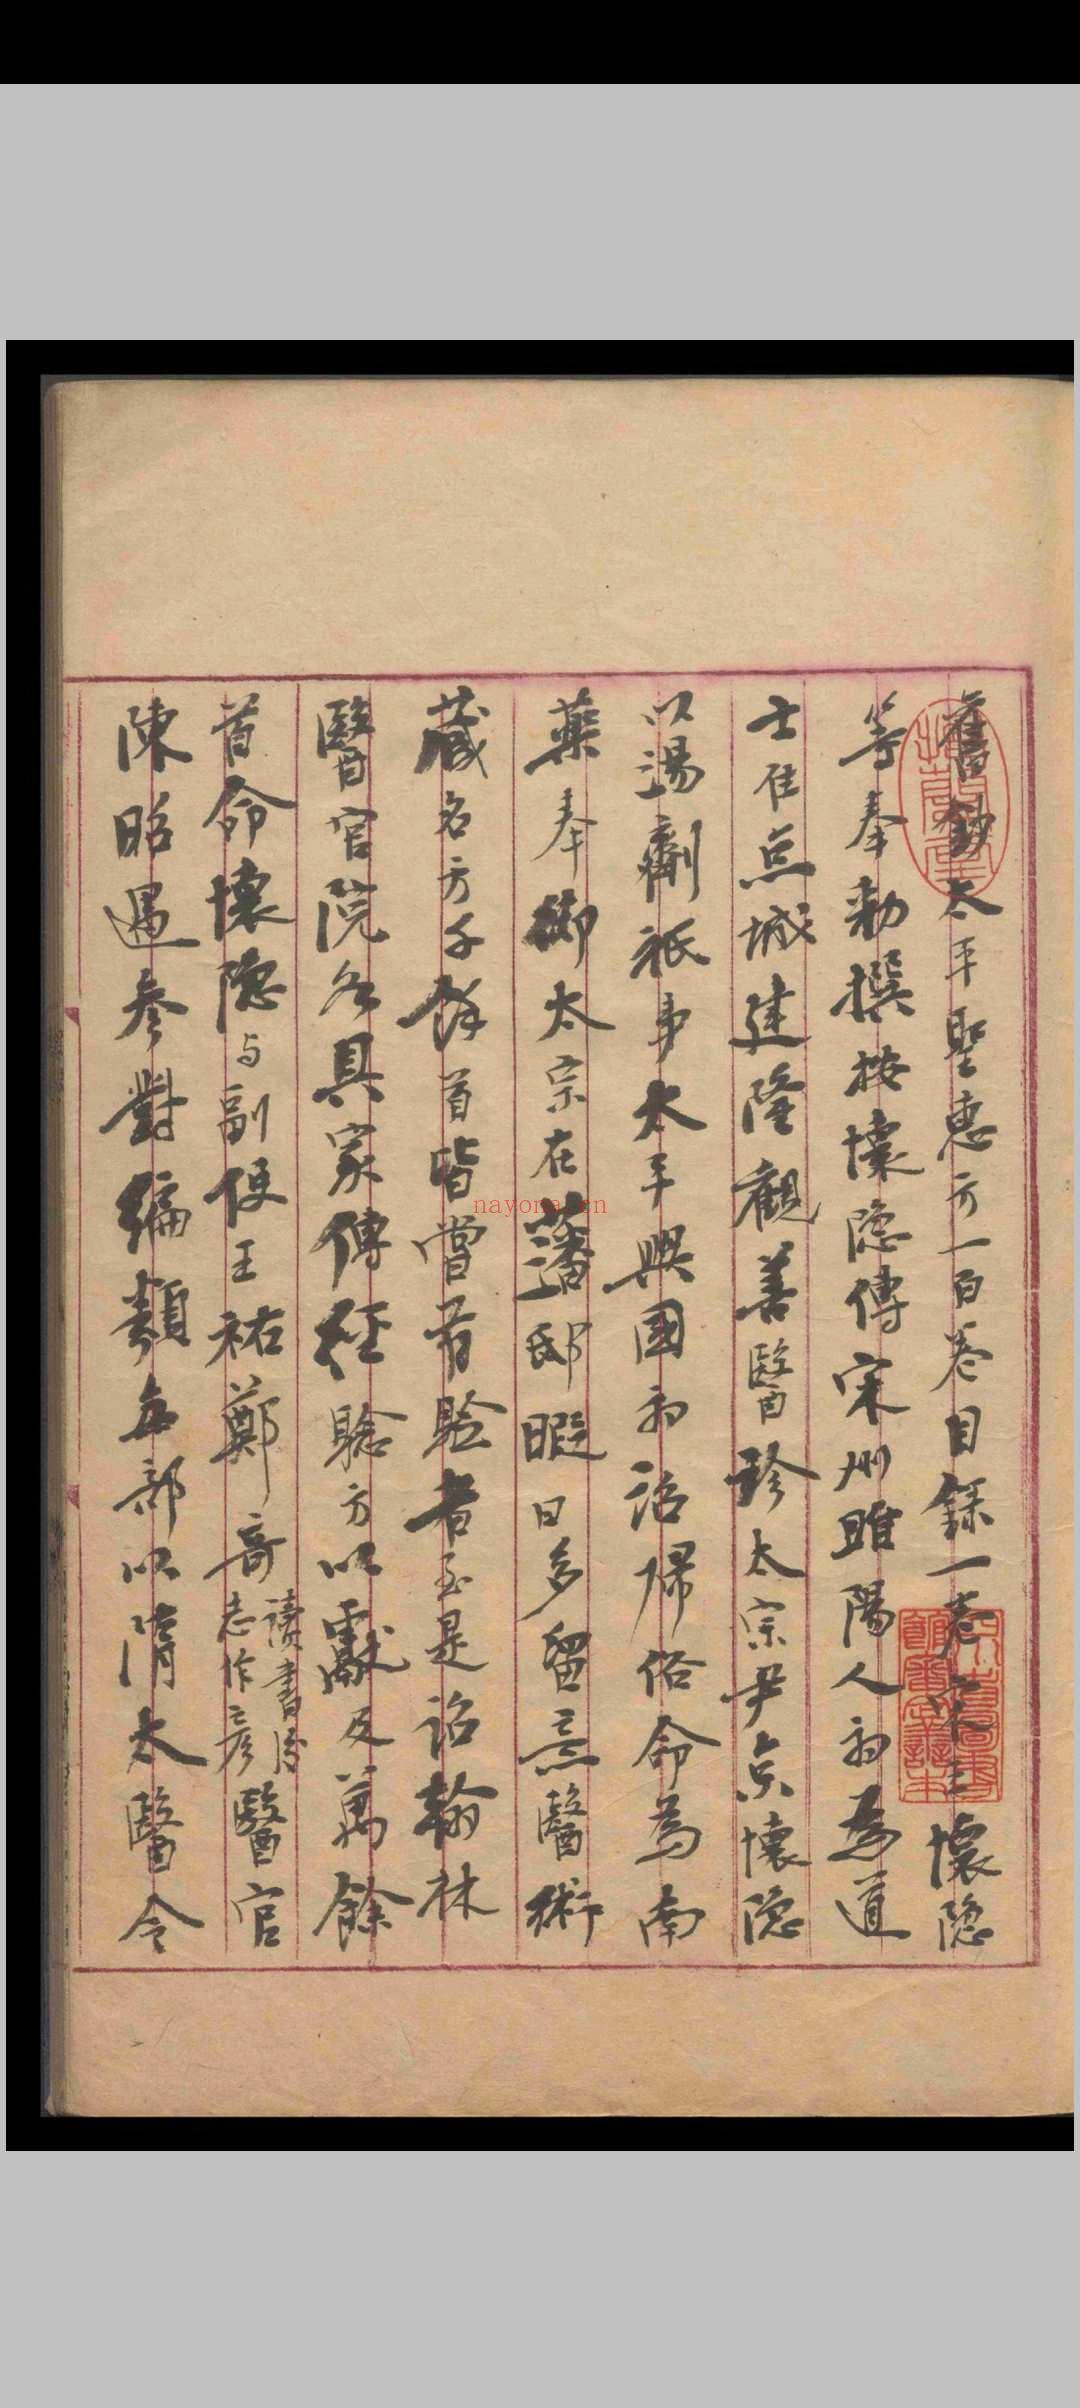 舊鈔太平聖惠方一百卷目録一卷宋王懷隐
等奉勅撰按懷隐傳宋州睢陽人初為道
士住京城建隆觀善醫珍太宗尹京懷隐
以湯劑祗事太平興國初詔歸俗命為南
藥奉御太宗在藩邸暇日多留意醫術
藏名方千餘首皆嘗有驗者至是詔翰林
醫官院各具家傳經驗方以獻及萬餘
首命懷隐与副使王祐鄭奇
讀書後
志作彦
醫官
陳昭遇參對編類每部以隋太醫令
nayona.cn